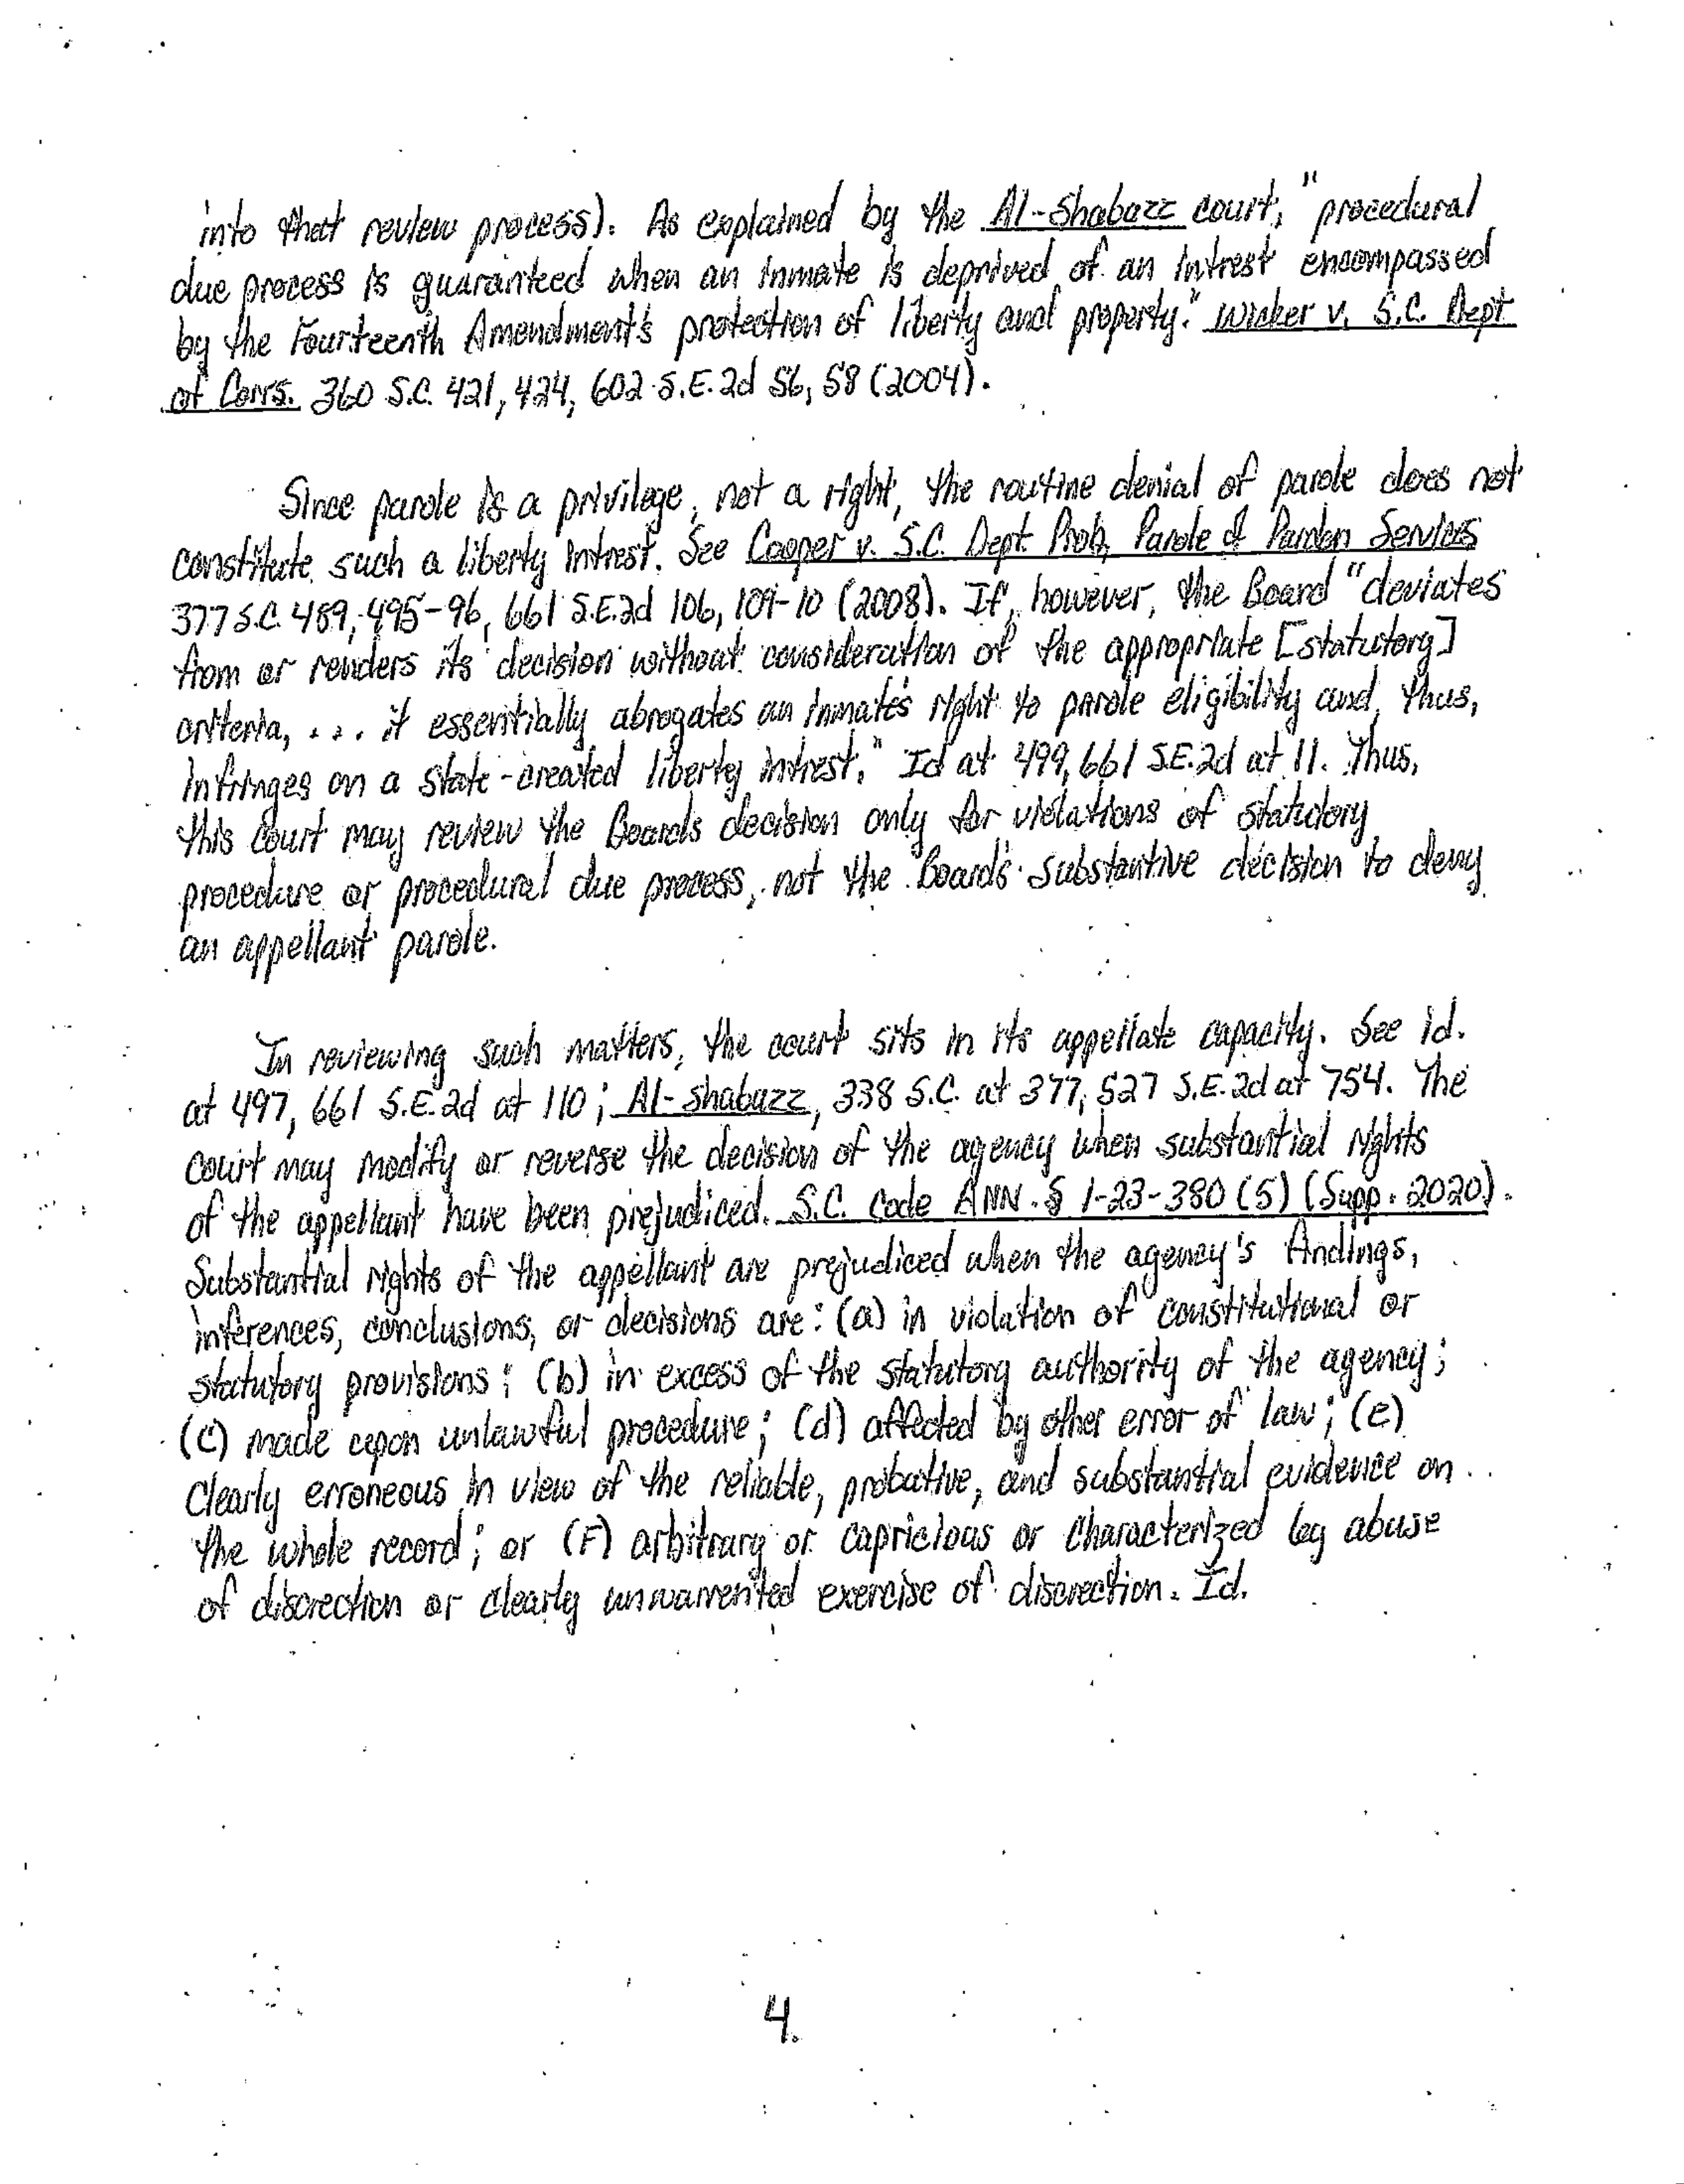 into that review process). As explained by the Al-Shabazz court, "procedural
due process is guaranteed when an inmate is deprived of an intrest encompassed
by the Fourteenth Amendment's protection of liberty and property." Wicker v. S.C. Dept
of Corrs. 360 S.C. 421, 424, 602 S.E.2d 56, 58 (2004).
Since parole is a privilege, not a right, the routine denial of parole does not
constitute such a liberty intrest. See Cooper v. S.C. Dept. Prob, Parole & Pardon Services
377 S.C. 489, 495-96, 661 S.E.2d 106, 109-10 (2008). If, however, the Board "deviates
from or renders its decision without consideration of the appropriate [statutory]
criteria, ... it essentially abrogates an inmate's right to parole eligibility and, thus,
infringes on a state-created liberty intrest." Id at 499, 661 S.E.2d at 11. Thus,
this court may review the Boards decision only for violations of statutory
procedure or procedural due process, not the Board's substantive decision to deny
an appellant parole.
In reviewing such matters, the court sits in its appellate capacity. See id.
at 497, 661 S.E.2d at 110; Al-Shabazz, 338 S.C. at 377, 527 S.E.2d at 754. The
court may modify or reverse the decision of the agency when substantial rights
of the appellant have been prejudiced. S.C. Code ANN. § 1-23-380 (5) (Supp. 2020).
Substantial rights of the appellant are prejudiced when the agency's findings,
inferences, conclusions, or decisions are: (a) in violation of constitutional or
statutory provisions; (b) in excess of the statutory authority of the agency;
(c) made upon unlawful procedure; (d) affected by other error of law; (e)
Clearly erroneous in view of the reliable, probative, and substantial evidence on
the whole record; or (F) arbitrary or capricious or characterized by abuse
of discretion or clearly unwarrented exercise of discretion. Id.
4.